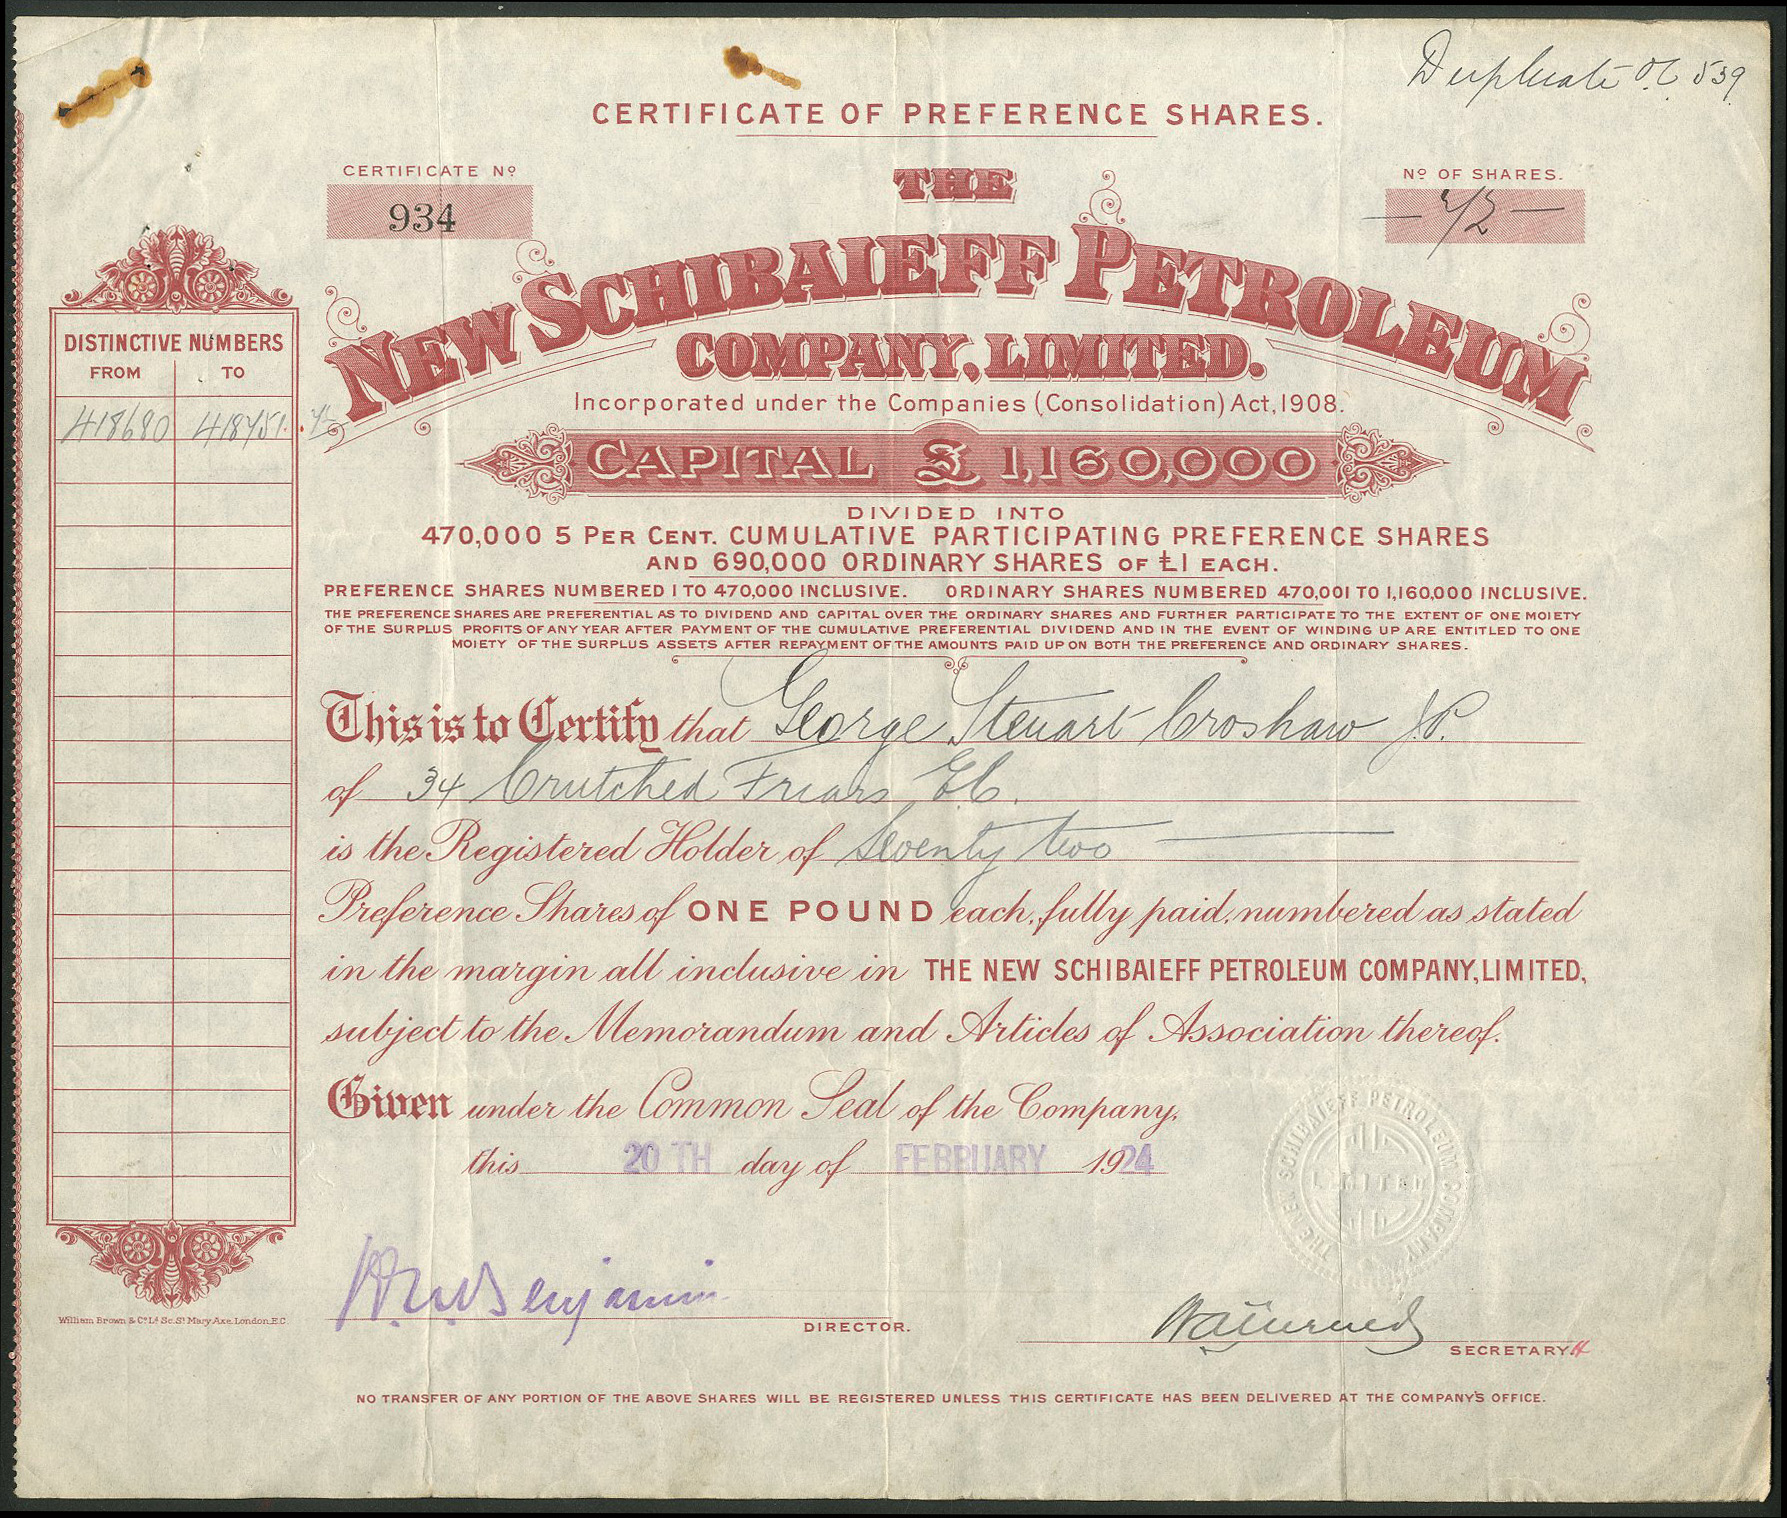 Duplicate of C 539
CERTIFICATE OF PREFERENCE SHARES.
CERTIFICATE Nº
934
Nº OF SHARES.
— 72 —
THE
NEW SCHIBAIEFF PETROLEUM
COMPANY, LIMITED.
Incorporated under the Companies (Consolidation) Act, 1908.
CAPITAL £ 1,160,000
DIVIDED INTO
470,000 5 PER CENT. CUMULATIVE PARTICIPATING PREFERENCE SHARES
AND 690,000 ORDINARY SHARES OF £1 EACH.
PREFERENCE SHARES NUMBERED 1 TO 470,000 INCLUSIVE. ORDINARY SHARES NUMBERED 470,001 TO 1,160,000 INCLUSIVE.
THE PREFERENCE SHARES ARE PREFERENTIAL AS TO DIVIDEND AND CAPITAL OVER THE ORDINARY SHARES AND FURTHER PARTICIPATE TO THE EXTENT OF ONE MOIETY
OF THE SURPLUS PROFITS OF ANY YEAR AFTER PAYMENT OF THE CUMULATIVE PREFERENTIAL DIVIDEND AND IN THE EVENT OF WINDING UP ARE ENTITLED TO ONE
MOIETY OF THE SURPLUS ASSETS AFTER REPAYMENT OF THE AMOUNTS PAID UP ON BOTH THE PREFERENCE AND ORDINARY SHARES.
DISTINCTIVE NUMBERS
FROM TO
418680 418751. 72
This is to Certify that George Steuart Croshaw J.P.
of 34 Crutched Friars E.C.
is the Registered Holder of Seventy two
Preference Shares of ONE POUND each, fully paid, numbered as stated
in the margin all inclusive in THE NEW SCHIBAIEFF PETROLEUM COMPANY, LIMITED,
subject to the Memorandum and Articles of Association thereof.
Given under the Common Seal of the Company,
this 20TH day of FEBRUARY 1924
THE NEW SCHIBAIEFF PETROLEUM COMPANY
LIMITED
Benjamin
DIRECTOR.
SECRETARY.
William Brown & Cº Lᵈ Sc. Sᵗ Mary Axe. London. E.C
NO TRANSFER OF ANY PORTION OF THE ABOVE SHARES WILL BE REGISTERED UNLESS THIS CERTIFICATE HAS BEEN DELIVERED AT THE COMPANY'S OFFICE.